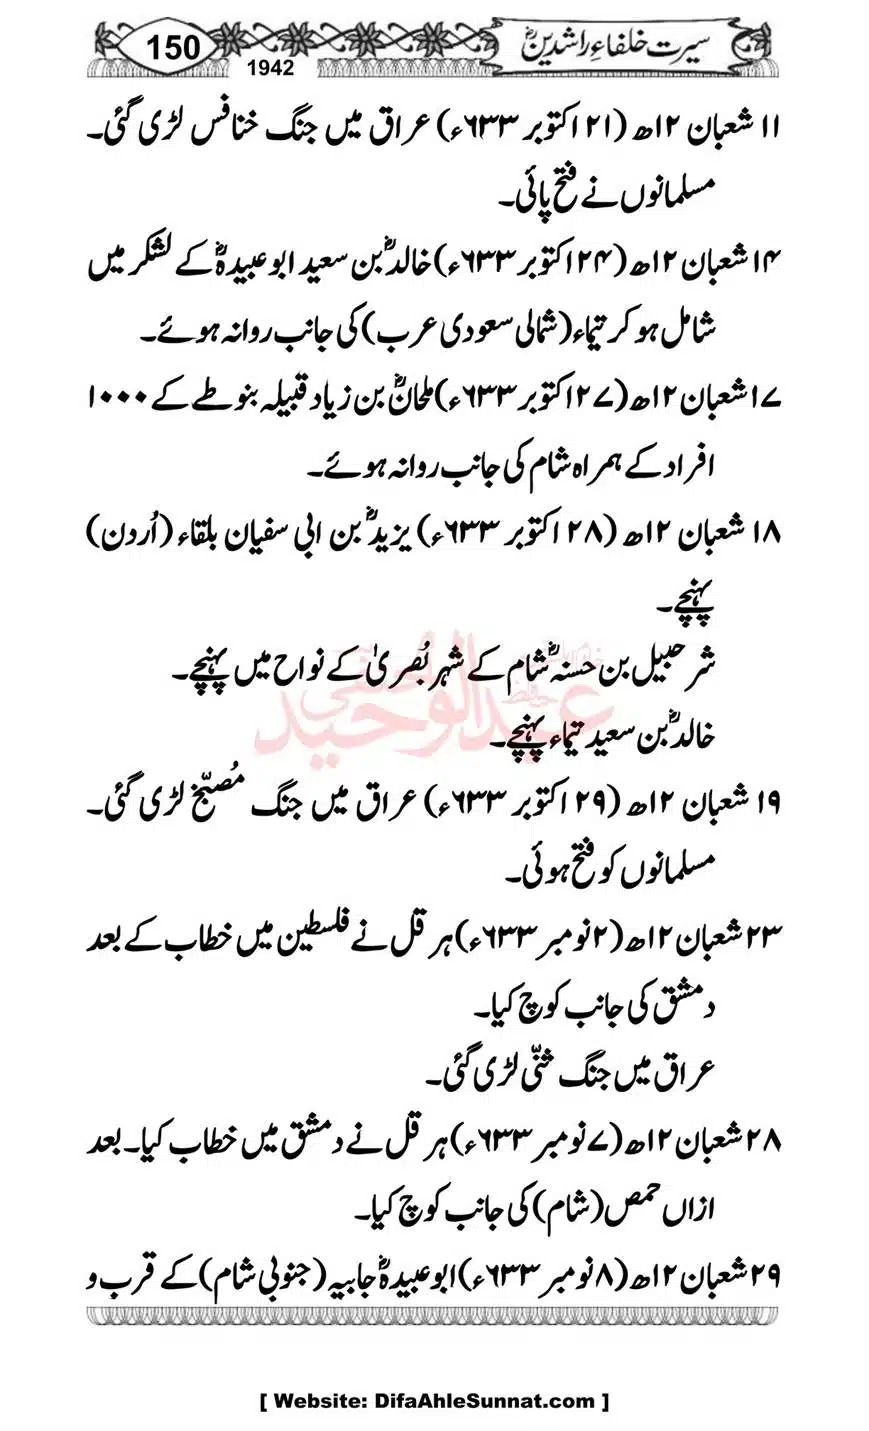 سیرت خلفاءِ راشدینؓ
150
1942
۱۱ شعبان ۱۲ھ (۲۱ اکتوبر ۶۳۳ء) عراق میں جنگ خنافس لڑی گئی۔
مسلمانوں نے فتح پائی۔
۱۴ شعبان ۱۲ھ (۲۴ اکتوبر ۶۳۳ء) خالدؓ بن سعید ابوعبیدہؓ کے لشکر میں
شامل ہو کر تیماء (شمالی سعودی عرب) کی جانب روانہ ہوئے۔
۱۷ شعبان ۱۲ھ (۲۷ اکتوبر ۶۳۳ء) ملحانؓ بن زیاد قبیلہ بنو طے کے ۱۰۰۰
افراد کے ہمراہ شام کی جانب روانہ ہوئے۔
۱۸ شعبان ۱۲ھ (۲۸ اکتوبر ۶۳۳ء) یزیدؓ بن ابی سفیان بلقاء (اُردن)
پہنچے۔
شرحبیل بن حسنہؓ شام کے شہر بُصریٰ کے نواح میں پہنچے۔
خالدؓ بن سعید تیماء پہنچے۔
۱۹ شعبان ۱۲ھ (۲۹ اکتوبر ۶۳۳ء) عراق میں جنگ مُصیّخ لڑی گئی۔
مسلمانوں کو فتح ہوئی۔
۲۳ شعبان ۱۲ھ (۲ نومبر ۶۳۳ء) ہرقل نے فلسطین میں خطاب کے بعد
دمشق کی جانب کوچ کیا۔
عراق میں جنگ ثنّی لڑی گئی۔
۲۸ شعبان ۱۲ھ (۷ نومبر ۶۳۳ء) ہرقل نے دمشق میں خطاب کیا۔ بعد
ازاں حمص (شام) کی جانب کوچ کیا۔
۲۹ شعبان ۱۲ھ (۸ نومبر ۶۳۳ء) ابوعبیدہؓ جابیہ (جنوبی شام) کے قرب و
عبدالوحید الحنفی
[ Website: DifaAhleSunnat.com ]